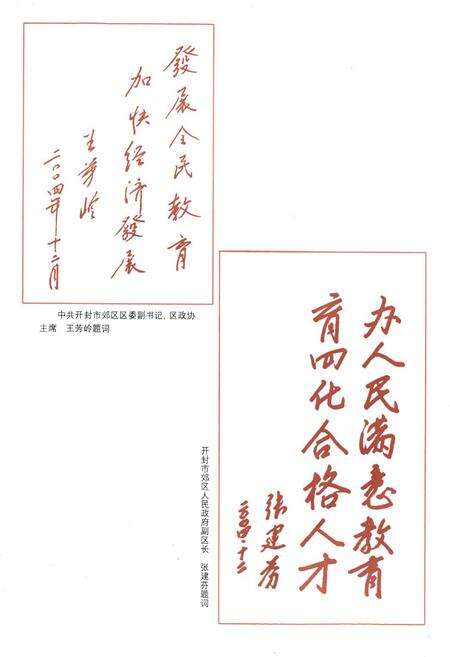 發展全民教育
加快經济發展
王芳岭
二〇〇四年十二月
中共开封市郊区区委副书记、区政协
主席 王芳岭题词
办人民满意教育
育四化合格人才
张建芬
二〇〇四·十二
开封市郊区人民政府副区长 张建芬题词